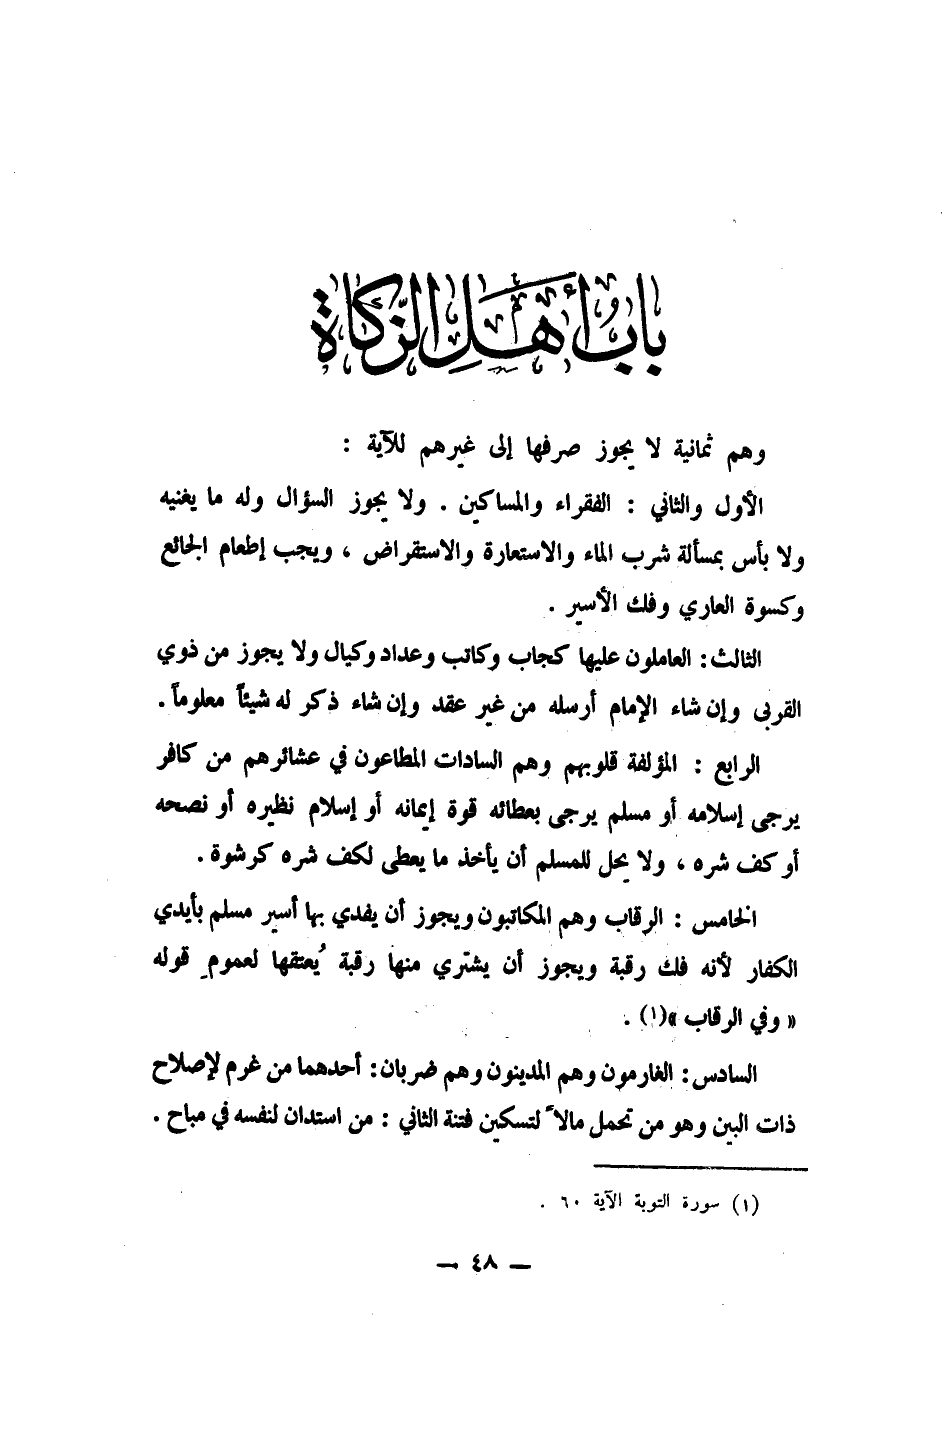 باب أهل الزكاة
وهم ثمانية لا يجوز صرفها إلى غيرهم للآية :
الأول والثاني : الفقراء والمساكين . ولا يجوز السؤال وله ما يغنيه
ولا بأس بمسألة شرب الماء والاستعارة والاستقراض ، ويجب إطعام الجائع
وكسوة العاري وفك الأسير .
الثالث : العاملون عليها كجاب وكاتب وعداد وكيال ولا يجوز من ذوي
القربى وإن شاء الإمام أرسله من غير عقد وإن شاء ذكر له شيئاً معلوماً .
الرابع : المؤلفة قلوبهم وهم السادات المطاعون في عشائرهم من كافر
يرجى إسلامه أو مسلم يرجى بعطائه قوة إيمانه أو إسلام نظيره أو نصحه
أو كف شره ، ولا يحل للمسلم أن يأخذ ما يعطى لكف شره كرشوة .
الخامس : الرقاب وهم المكاتبون ويجوز أن يفدي بها أسير مسلم بأيدي
الكفار لأنه فك رقبة ويجوز أن يشتري منها رقبة يُعتقها لعمومِ قوله
« وفي الرقاب »(١) .
السادس : الغارمون وهم المدينون وهم ضربان : أحدهما من غرم لإصلاح
ذات البين وهو من تحمل مالاً لتسكين فتنة الثاني : من استدان لنفسه في مباح .
(١) سورة التوبة الآية ٦٠ .
— ٤٨ —